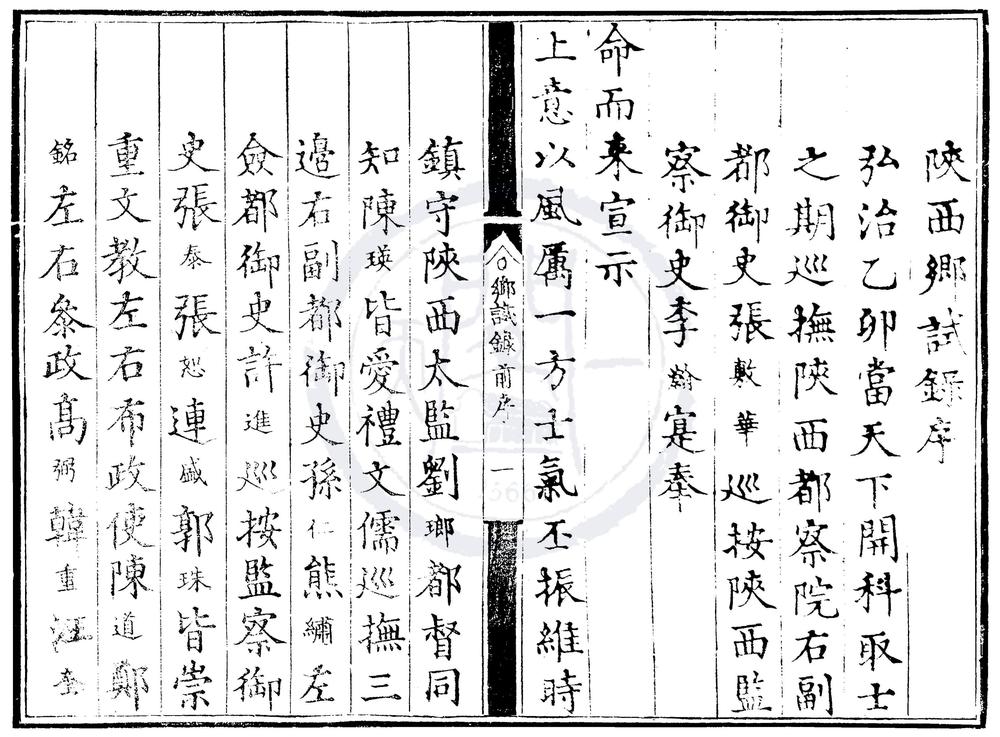 陝西鄉試錄序
弘治乙卯當天下開科取士
之期巡撫陝西都察院右副
都御史張敷華巡按陝西監
察御史李瀚寔奉
命而來宣示
上意以風厲一方士氣丕振維時
鄉試錄前序 一
鎮守陝西太監劉瑯都督同
知陳瑛皆愛禮文儒巡撫三
邊右副都御史孫仁熊繡左
僉都御史許進巡按監察御
史張泰張恕連盛郭珠皆崇
重文教左右布政使陳道鄭
銘左右參政高弼韓重汪奎